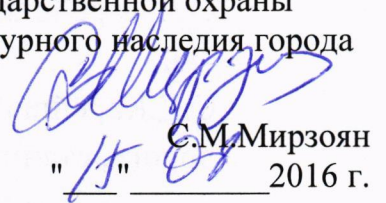 дарственной охраны
урного наследия города
С.М.Мирзоян
"15" 08 2016 г.